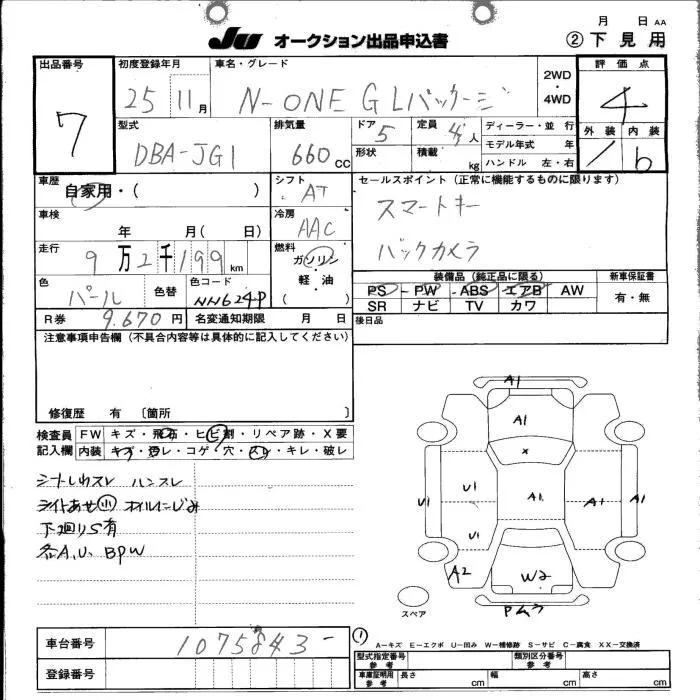 月 日 AA
JU オークション出品申込書 ②下見用
出品番号 初度登録年月 車名・グレード 評価点
7 25 11月 N-ONE G Lパッケージ 2WD・4WD 4
外装 内装
型式 排気量 ドア 定員 ディーラー・並行
DBA-JG1 660cc 5 4人 モデル年式 年
形状 積載 kg ハンドル 左・右
車歴 シフト セールスポイント(正常に機能するものに限ります)
自家用・( ) AT スマートキー
車検 冷房
年 月( 日) AAC バックカメラ
走行 燃料
9万2千199km ガソリン・軽・油 ( )
色 色替 色コード 装備品(純正品に限る) 新車保証書
パール NH624P PS PW ABS エアB AW 有・無
SR ナビ TV カワ
R券 9,670円 名変通知期限 月 日 後日品
注意事項申告欄(不具合内容等は具体的に記入してください)
修復歴 有 〔箇所 〕
検査員記入欄 FW キズ・飛石・ヒビ割・リペア跡・X要
内装 キズ・ヨゴレ・コゲ・穴・スレ・キレ・破レ
シートしわスレ ハンスレ
ライトあせ小 オイルにじみ
下廻りS有
各A.U. BPW
A1
A1
X
U1 U1 A1 A1 A1
U1
A2 W2
スペア
車台番号 1075843-
登録番号
① A-キズ E-エクボ U-凹み W-補修跡 S-サビ C-腐食 XX-交換済
型式指定番号 参考 類別区分番号 参考
車庫証明用 参考 長さ cm 幅 cm 高さ cm